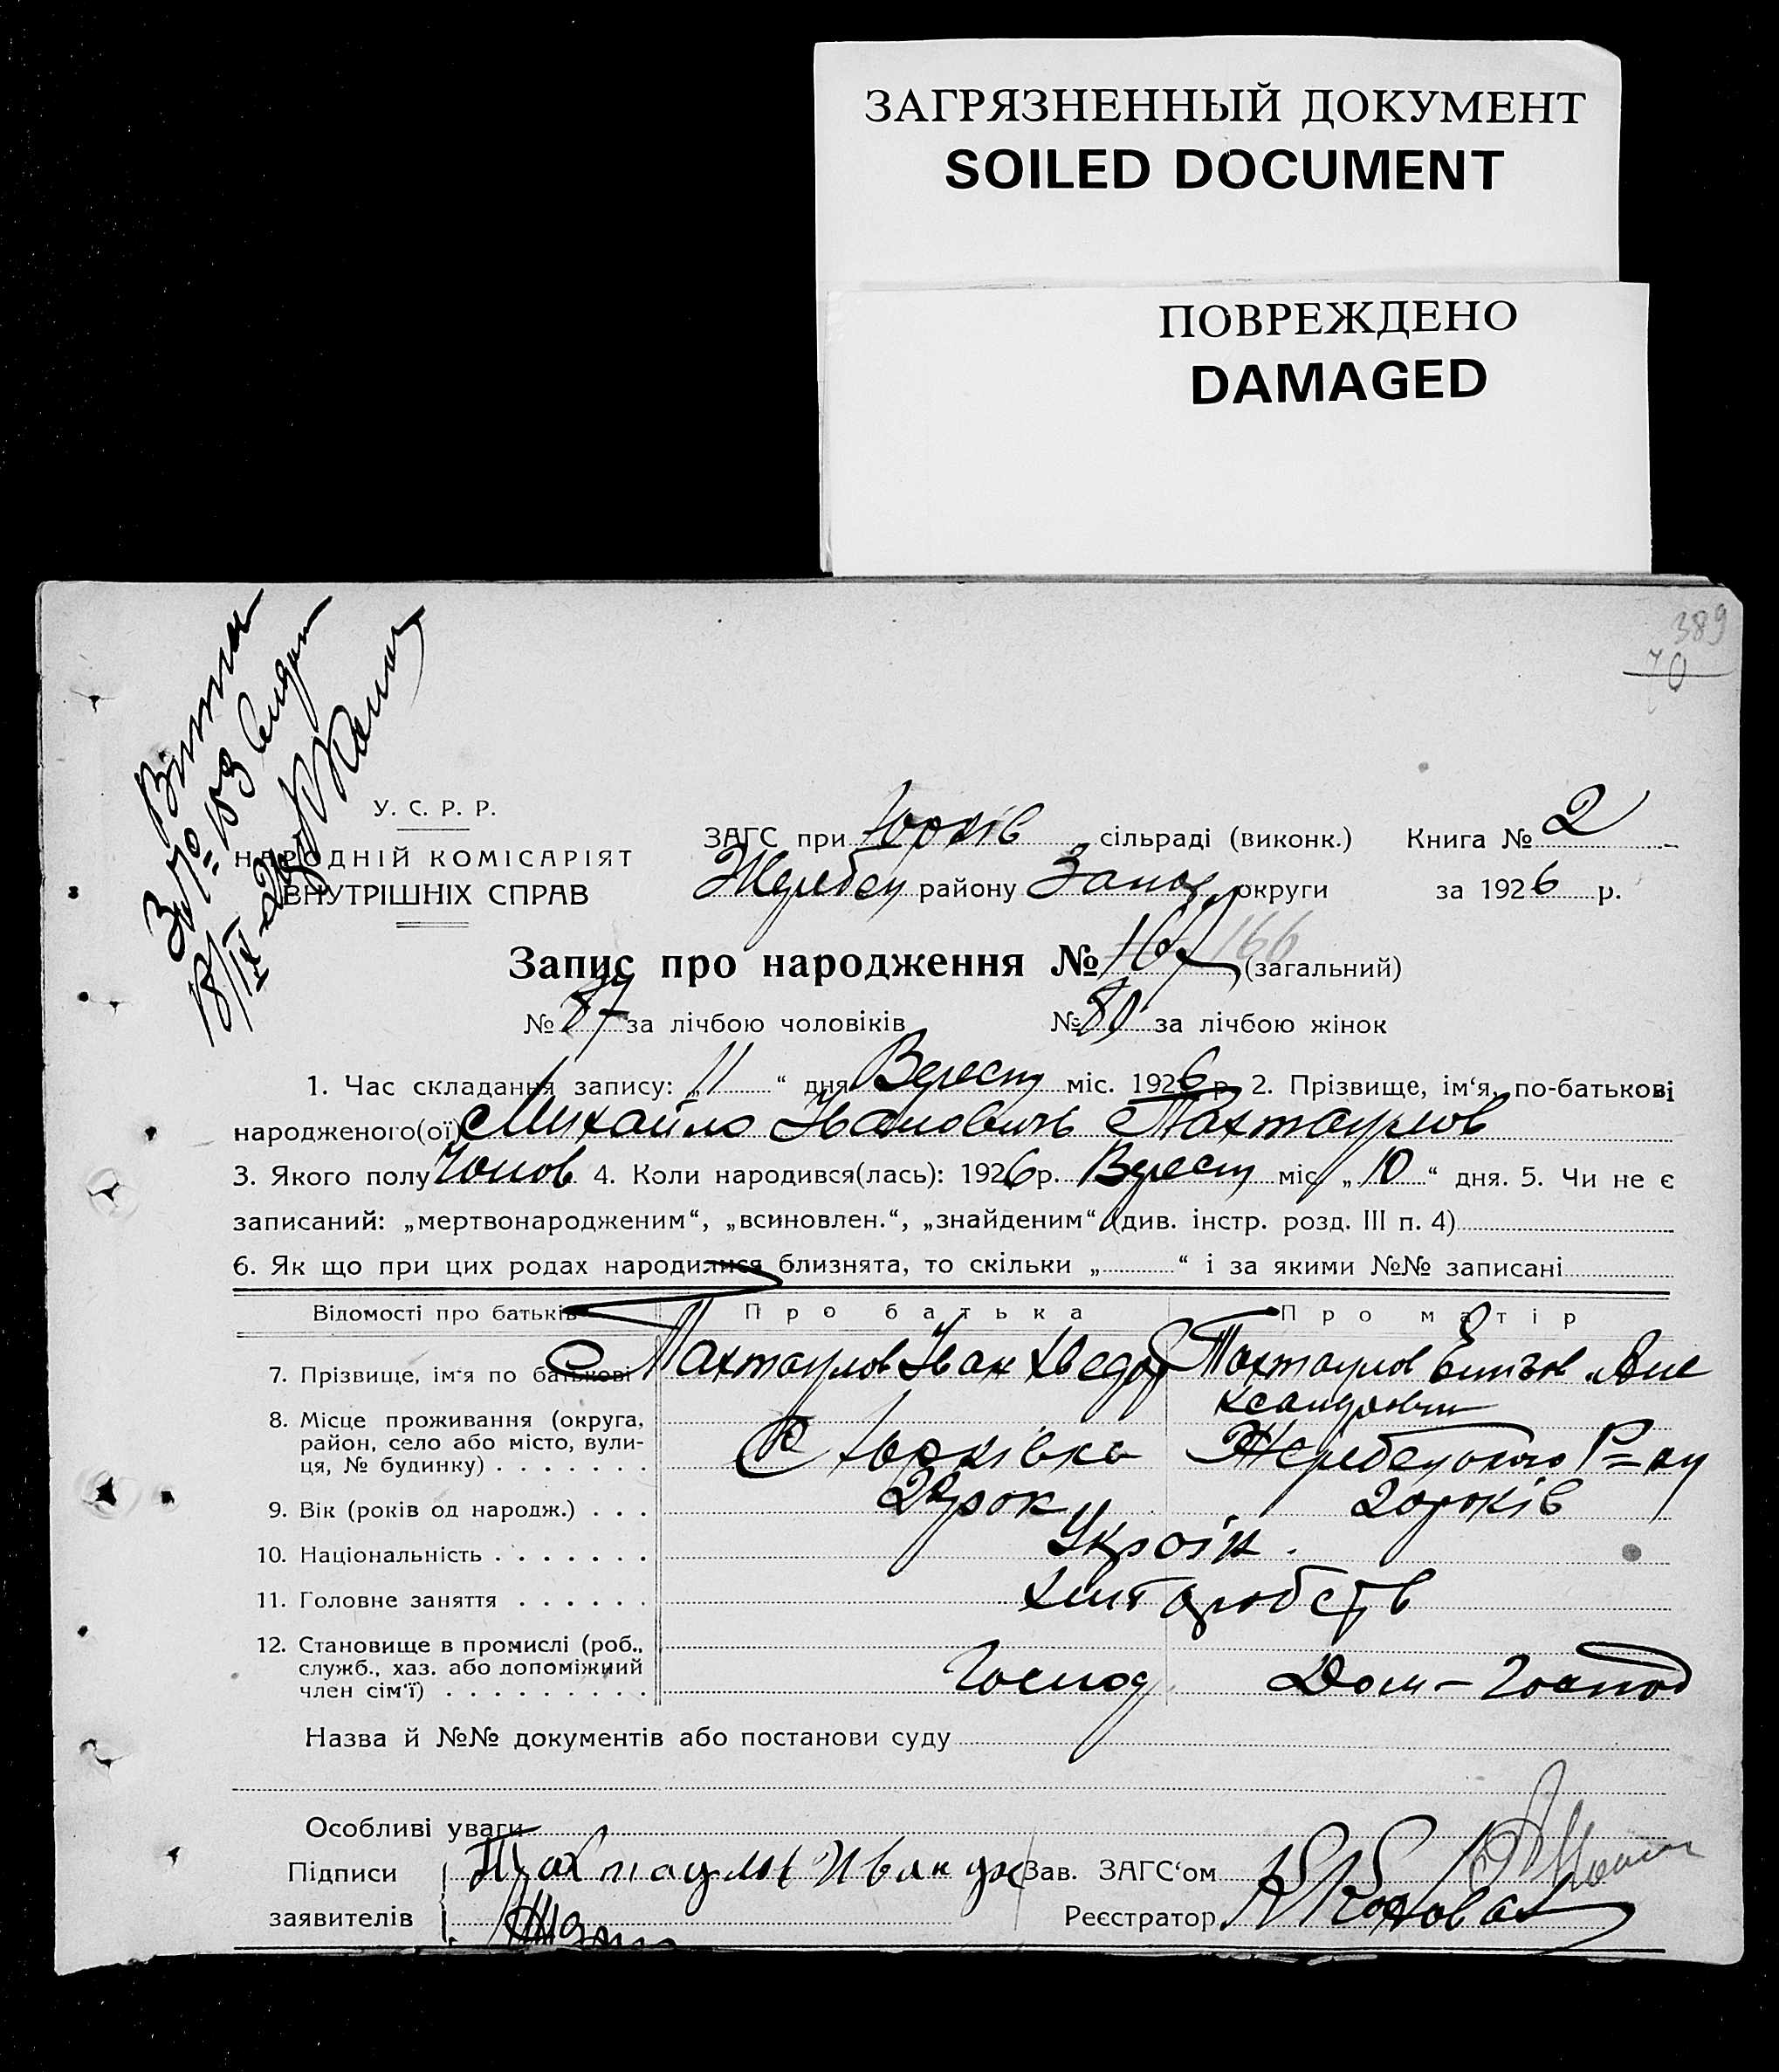 ЗАГРЯЗНЕННЫЙ ДОКУМЕНТ
SOILED DOCUMENT
ПОВРЕЖДЕНО
DAMAGED
389
70
У. С. Р. Р.
НАРОДНІЙ КОМІСАРІЯТ
ВНУТРІШНІХ СПРАВ
ЗАГС при Юрків сільраді (виконк.) Книга № 2
Жеребец району Запоз округи за 1926 р.
Запис про народження № 167 166 (загальний)
№ 87 за лічбою чоловіків № 80 за лічбою жінок
1. Час складання запису: „11“ дня Вересн міс. 1926 р. 2. Прізвище, ім‘я, по-батькові
народженого(ої) Михайло Іванович Тахтаулов
3. Якого полу Чолов 4. Коли народився(лась): 1926 р. Вересн міс. „10“ дня. 5. Чи не є
записаний: „мертвонародженим“, „всиновлен.“, „знайденим“ (див. інстр. розд. III п. 4)
6. Як що при цих родах народилися близнята, то скільки „ “ і за якими №№ записані
Відомості про батьків Про батька Про матір
7. Прізвище, ім‘я по батькові Тахтаулов Іван Хведор Тахтаулов Але
ксандровн
8. Місце проживання (округа,
район, село або місто, вули-
ця, № будинку) С Юрківка Жеребецького Р-ну
9. Вік (років од народж.) рок 20 років
10. Національність Україн.
11. Головне заняття Хліборобств
12. Становище в промислі (роб.,
служб., хаз. або допоміжний
член сім‘ї) Господ Дом-Господ
Назва й №№ документів або постанови суду
Особливі уваги
Підписи Тахтаулов Иван Зав. ЗАГС‘ом
заявителів Реєстратор